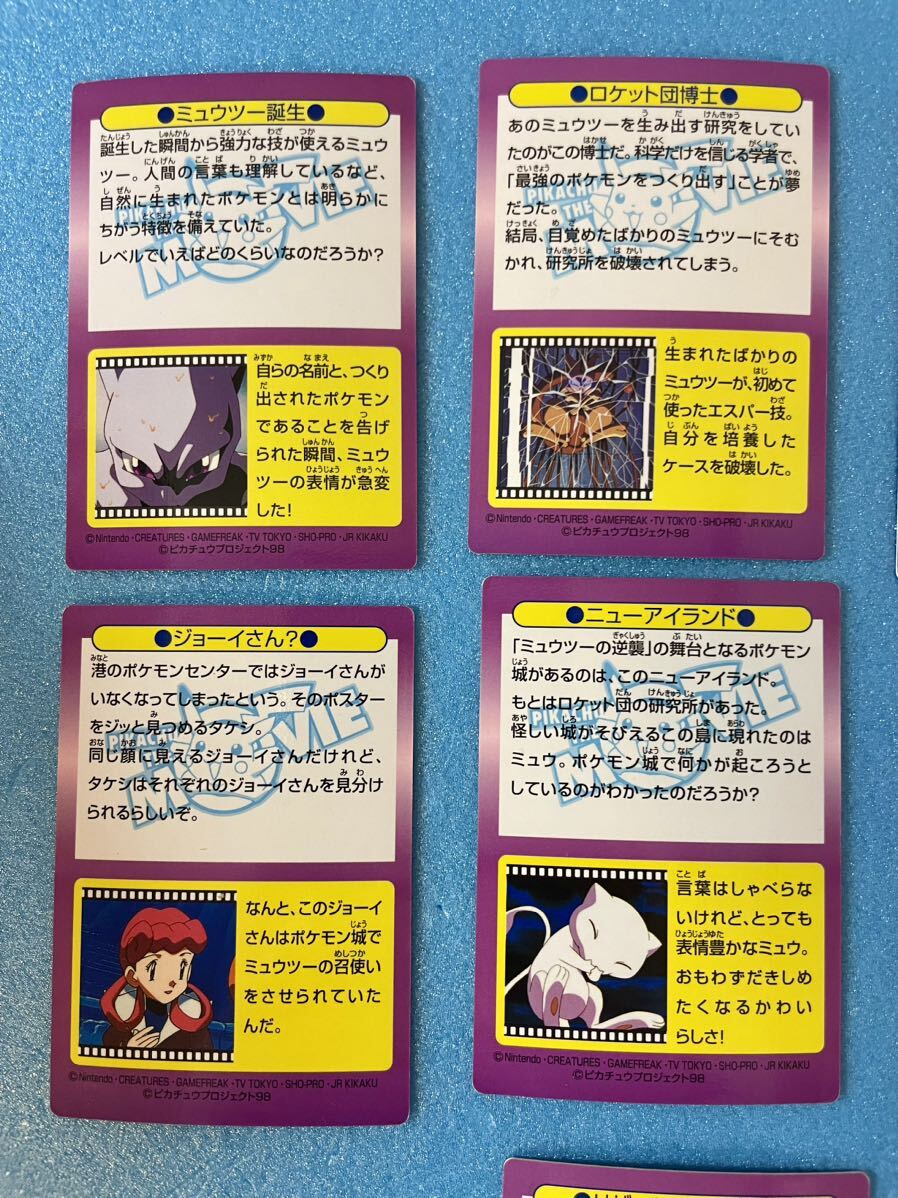 ●ミュウツー誕生●
誕生した瞬間から強力な技が使えるミュウ
ツー。人間の言葉も理解しているなど、
自然に生まれたポケモンとは明らかに
ちがう特徴を備えていた。
レベルでいえばどのくらいなのだろうか?
自らの名前と、つくり
出されたポケモン
であることを告げ
られた瞬間、ミュウ
ツーの表情が急変
した!
©Nintendo・CREATURES・GAMEFREAK・TV TOKYO・SHO-PRO・JR KIKAKU
©ピカチュウプロジェクト98
●ロケット団博士●
あのミュウツーを生み出す研究をしてい
たのがこの博士だ。科学だけを信じる学者で、
「最強のポケモンをつくり出す」ことが夢
だった。
結局、目覚めたばかりのミュウツーにそむ
かれ、研究所を破壊されてしまう。
生まれたばかりの
ミュウツーが、初めて
使ったエスパー技。
自分を培養した
ケースを破壊した。
©Nintendo・CREATURES・GAMEFREAK・TV TOKYO・SHO-PRO・JR KIKAKU
©ピカチュウプロジェクト98
●ジョーイさん?●
港のポケモンセンターではジョーイさんが
いなくなってしまったという。そのポスター
をジッと見つめるタケシ。
同じ顔に見えるジョーイさんだけれど、
タケシはそれぞれのジョーイさんを見分け
られるらしいぞ。
なんと、このジョーイ
さんはポケモン城で
ミュウツーの召使い
をさせられていた
んだ。
©Nintendo・CREATURES・GAMEFREAK・TV TOKYO・SHO-PRO・JR KIKAKU
©ピカチュウプロジェクト98
●ニューアイランド●
「ミュウツーの逆襲」の舞台となるポケモン
城があるのは、このニューアイランド。
もとはロケット団の研究所があった。
怪しい城がそびえるこの島に現れたのは
ミュウ。ポケモン城で何かが起ころうと
しているのがわかったのだろうか?
言葉はしゃべらな
いけれど、とっても
表情豊かなミュウ。
おもわずだきしめ
たくなるかわい
らしさ!
©Nintendo・CREATURES・GAMEFREAK・TV TOKYO・SHO-PRO・JR KIKAKU
©ピカチュウプロジェクト98